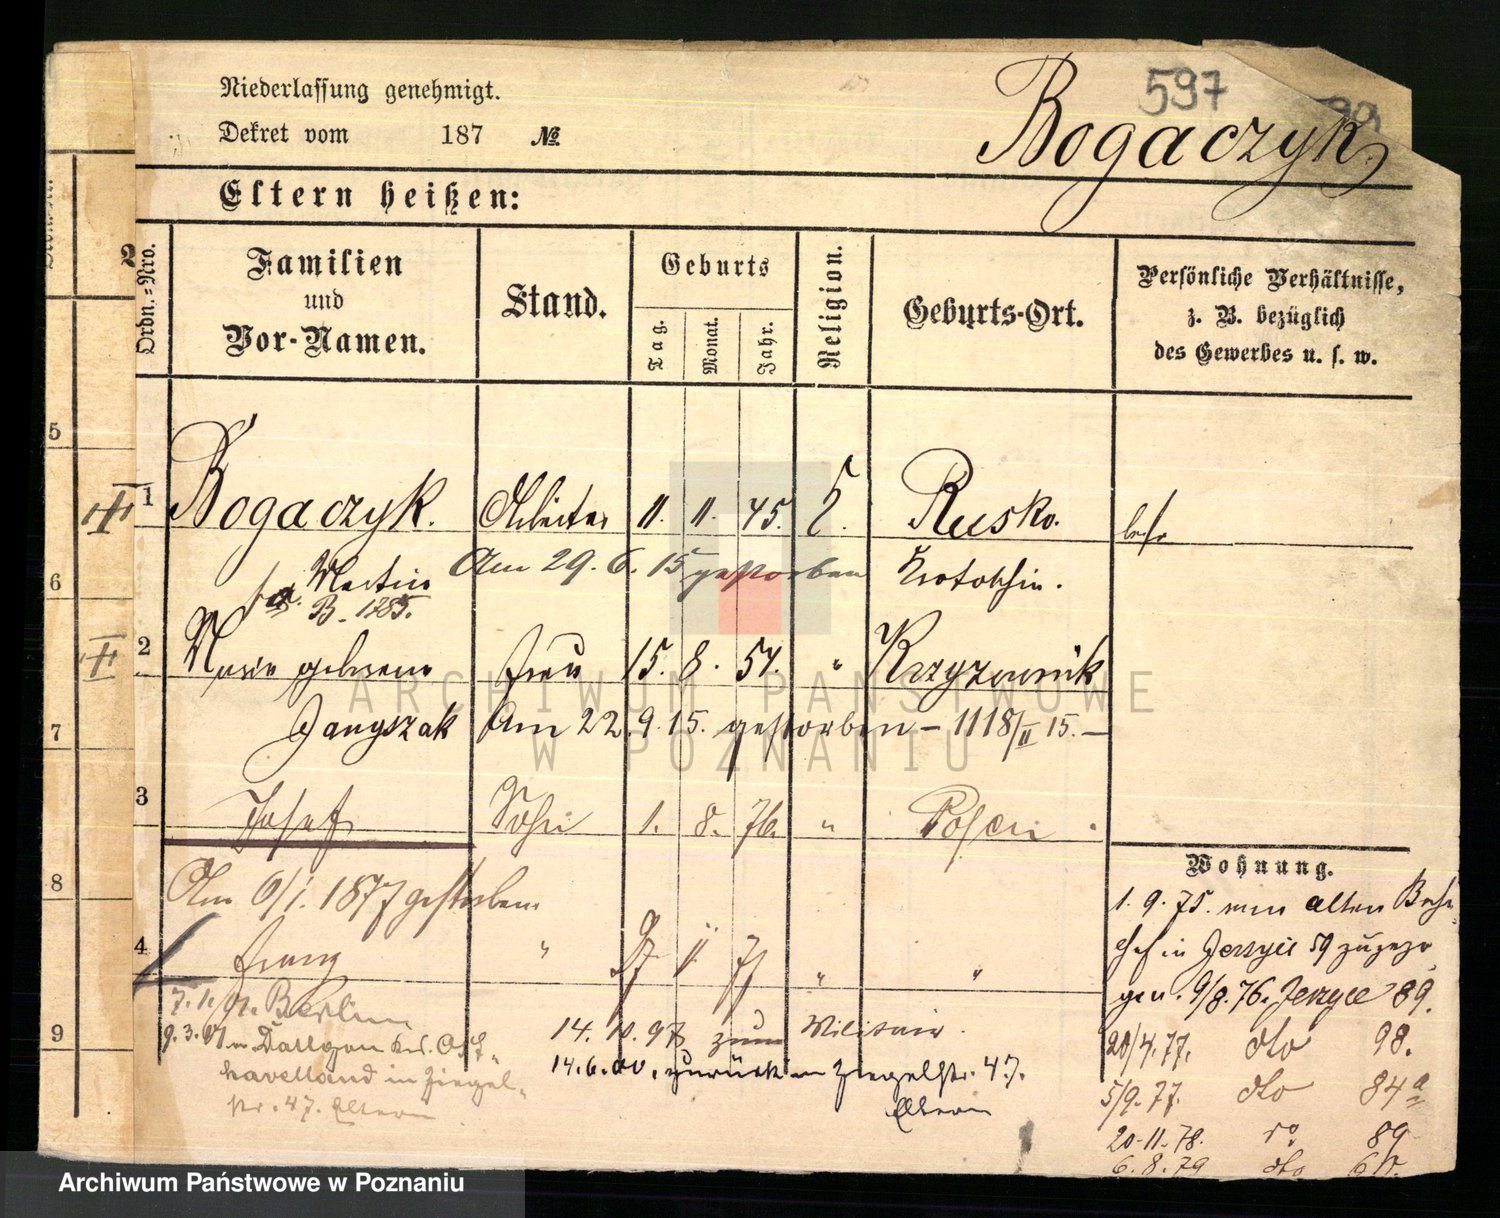 Niederlassung genehmigt.
597
Dekret vom 187 №
Bogaczyk.
Eltern heißen:
Ordn.-Nro.
Familien
und
Vor-Namen.
Stand.
Geburts
Tag.
Monat.
Jahr.
Religion.
Geburts-Ort.
Persönliche Verhältnisse,
z. B. bezüglich
des Gewerbes u. s. w.
5
1 Bogaczyk. Arbeiter 11. 11. 45. Rusko.
6
Martin Am 29. 6. 15 gestorben Krotoschin.
B. 1285.
2 Marie geborene Frau 15. 8. 51. " Krzyzownik
7
Am 22. 9. 15. gestorben – 1118/II 15. –
3 Josef Sohn 1. 8. 76. " Posen
Wohnung.
8
Am 6/1. 1877 gestorben
1. 9. 75. alten
4 Franz " 11 77 " "
in Jerzyce 59
gen. 9/8. 76. Jerzyce 89.
9
7. 1. Berlin
14. 10. 97 zum Militair.
20/4. 77. dto 98.
9. 3. 01 n. Dallgow Krs. Ost-
14. 6. 00. zurück n Ziegelstr. 47.
havelland in Ziegel-
Eltern
5/9. 77. dto 84a
str. 47. Eltern
20. 11. 78. 89
6. 8. 79 dto
ARCHIWUM PAŃSTWOWE
W POZNANIU
Archiwum Państwowe w Poznaniu